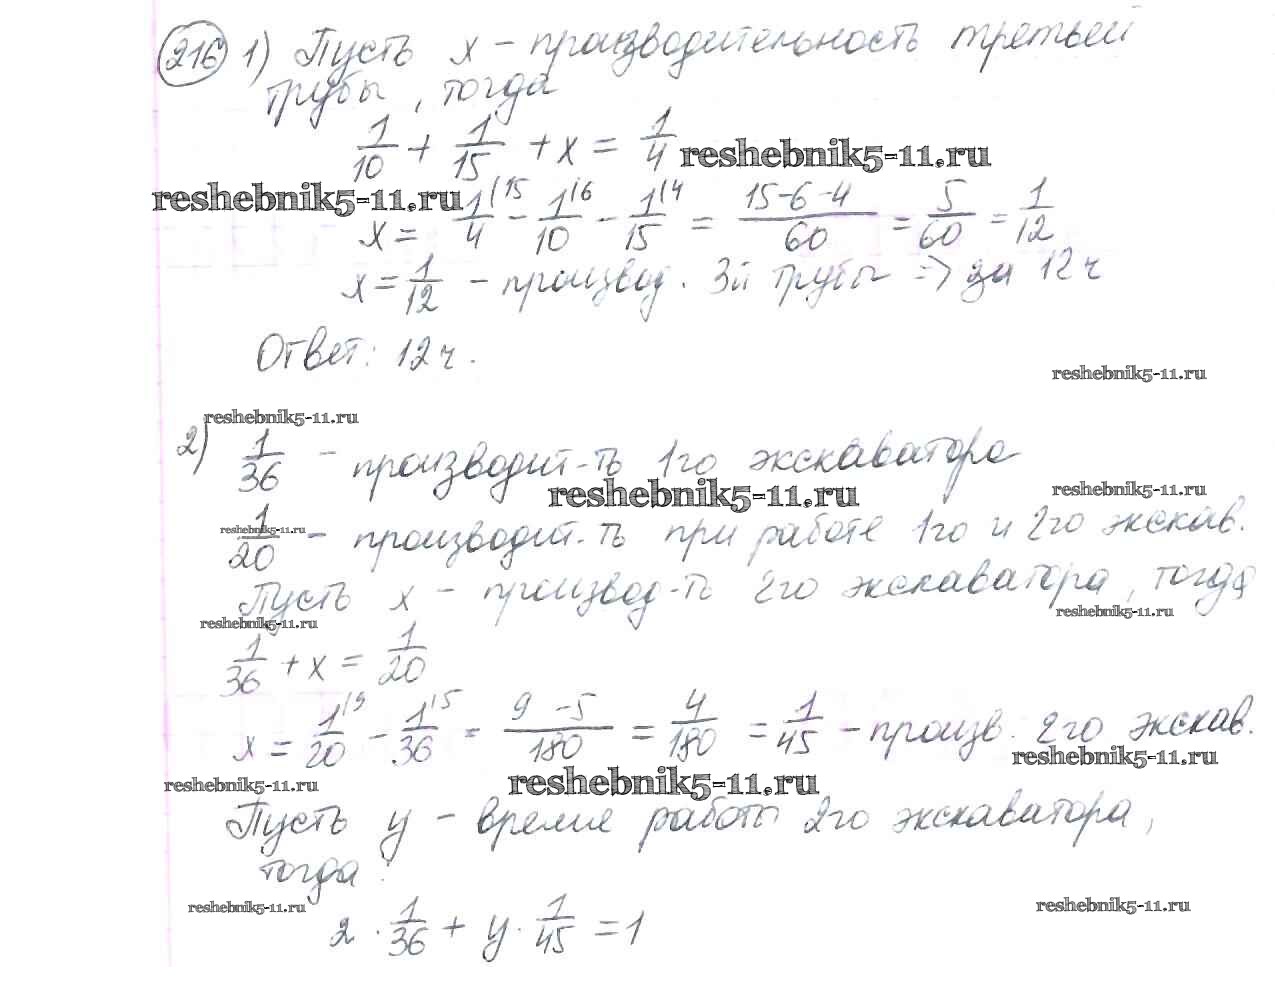 216 1) Пусть x - производительность третьей
трубы, тогда
1/10 + 1/15 + x = 1/4
reshebnik5-11.ru
reshebnik5-11.ru
x = 1/4(15 - 1/10(6 - 1/15(4 = (15-6-4)/60 = 5/60 = 1/12
x = 1/12 - производ. 3й трубы => за 12ч
Ответ: 12ч.
reshebnik5-11.ru
reshebnik5-11.ru
2) 1/36 - производит-ть 1го экскаватора
reshebnik5-11.ru
reshebnik5-11.ru
reshebnik5-11.ru
1/20 - производит-ть при работе 1го и 2го экскав.
Пусть x - производ-ть 2го экскаватора, тогда
reshebnik5-11.ru
reshebnik5-11.ru
1/36 + x = 1/20
x = 1/20(9 - 1/36(5 = (9-5)/180 = 4/180 = 1/45 - произв. 2го экскав.
reshebnik5-11.ru
reshebnik5-11.ru
reshebnik5-11.ru
Пусть y - время работы 2го экскаватора,
тогда:
reshebnik5-11.ru
reshebnik5-11.ru
2 · 1/36 + y · 1/45 = 1